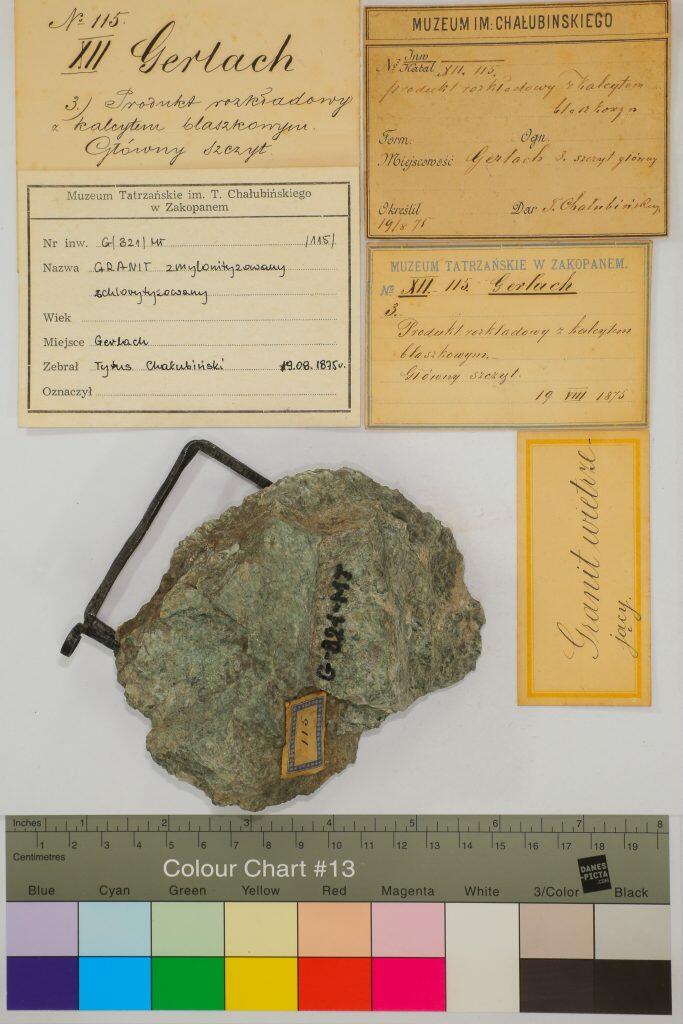 No 115.
XII Gerlach
3.) Produkt rozkładowy
z kalcytem blaszkowym.
Główny szczyt.
MUZEUM IM: CHAŁUBIŃSKIEGO
No Inw Katal XII. 115.
produkt rozkładowy z kalcytem
blaszkowym
Form: Ogn.
Miejscowość Gerlach 3. szczyt główny
Określił Dar T. Chałubińskiego
19/8 75
Muzeum Tatrzańskie im. T. Chałubińskiego
w Zakopanem
Nr inw. G/321/MT /115/
Nazwa GRANIT zmylonityzowany
schlorytyzowany
Wiek
Miejsce Gerlach
Zebrał Tytus Chałubiński 19.08.1875r.
Oznaczył
MUZEUM TATRZAŃSKIE W ZAKOPANEM.
No XII. 115. Gerlach
3.
Produkt rozkładowy z kalcytem
blaszkowym.
Główny szczyt.
19 VIII 1875
Granit wietrze-
jący.
G-321-MT
115
Inches 1 2 3 4 5 6 7 8
Centimetres 1 2 3 4 5 6 7 8 9 10 11 12 13 14 15 16 17 18 19
Colour Chart #13
DANES-PICTA.COM
Blue Cyan Green Yellow Red Magenta White 3/Color Black